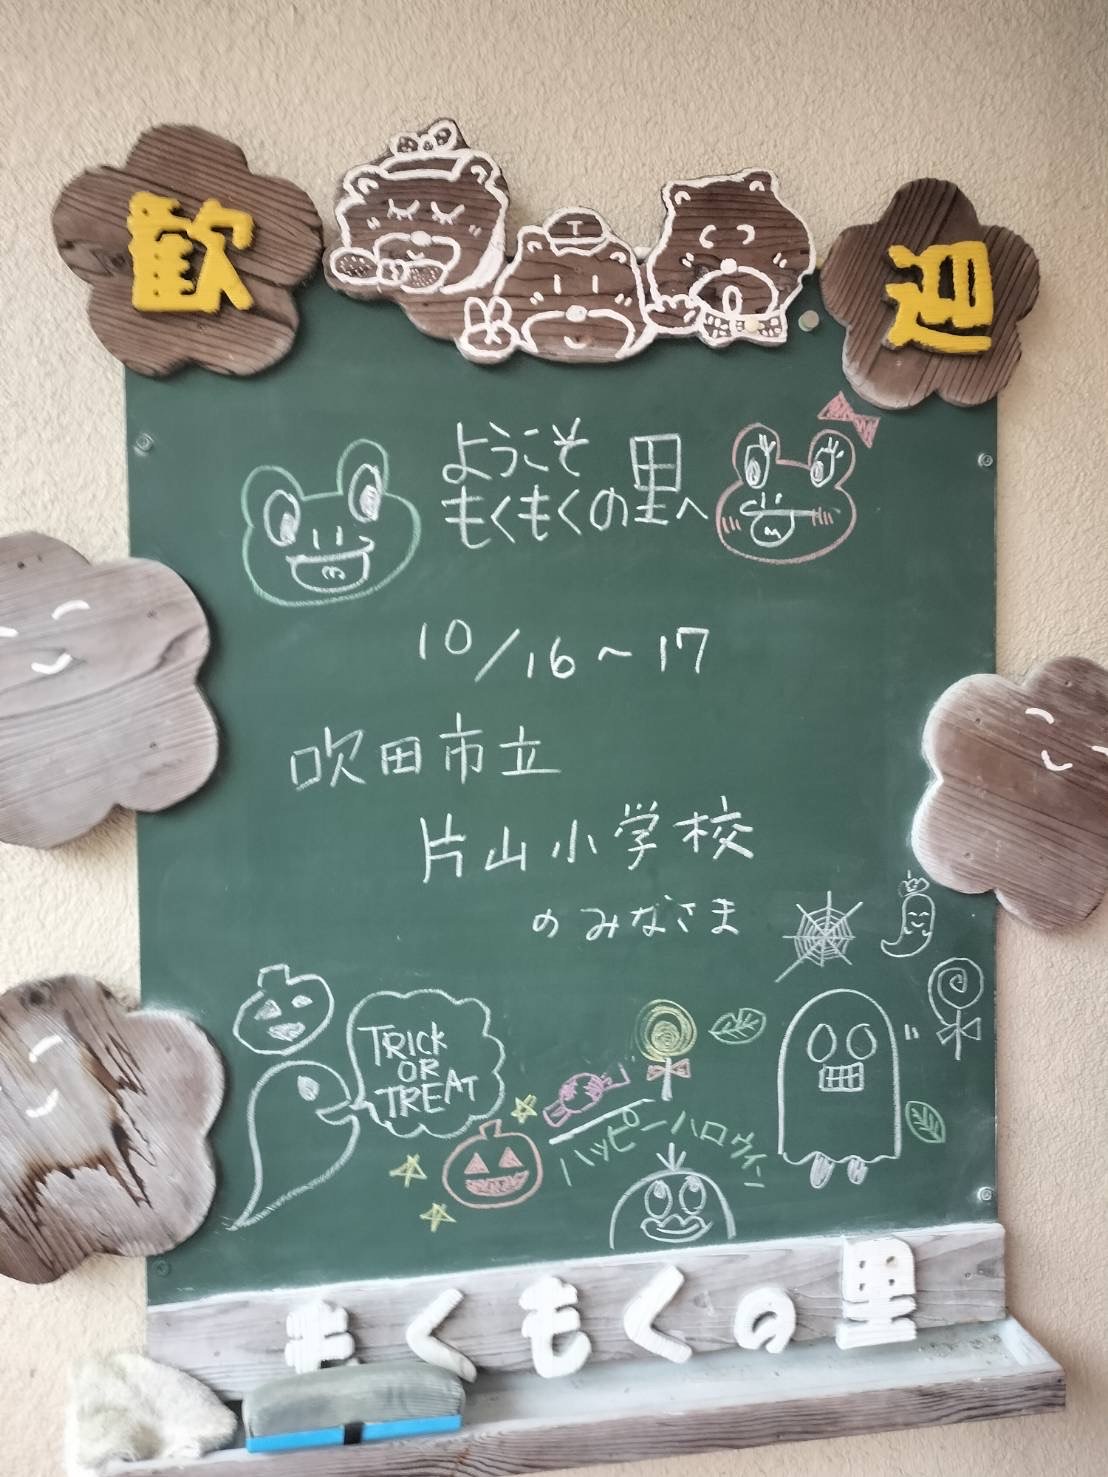 歓迎
ようこそ
もくもくの里へ
10/16～17
吹田市立
片山小学校
のみなさま
TRICK
OR
TREAT
ハッピーハロウィン
もくもくの里